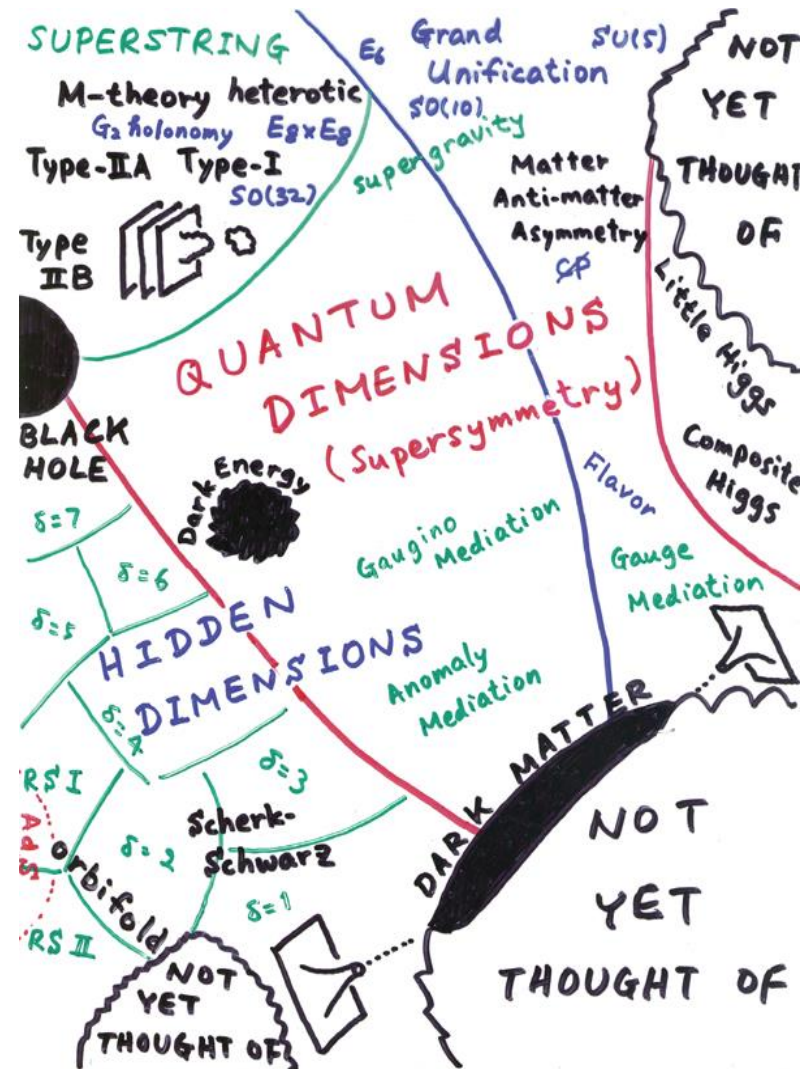 SUPERSTRING
M-theory heterotic
G₂ holonomy E8×E8
Type-IIA Type-I
SO(32)
Type
IIB
E₆
Grand
Unification
SU(5)
SO(10)
supergravity
Matter
Anti-matter
Asymmetry
C̸P̸
NOT
YET
THOUGHT
OF
Little Higgs
Composite
Higgs
QUANTUM
DIMENSIONS
(Supersymmetry)
BLACK
HOLE
Dark Energy
Flavor
Gaugino
Mediation
Gauge
Mediation
Anomaly
Mediation
δ=7
δ=6
δ=5
HIDDEN
DIMENSIONS
δ=4
δ=3
RS I
AdS
RS II
orbifold
δ=2
Scherk-
Schwarz
δ=1
DARK MATTER
NOT
YET
THOUGHT OF
NOT
YET
THOUGHT OF